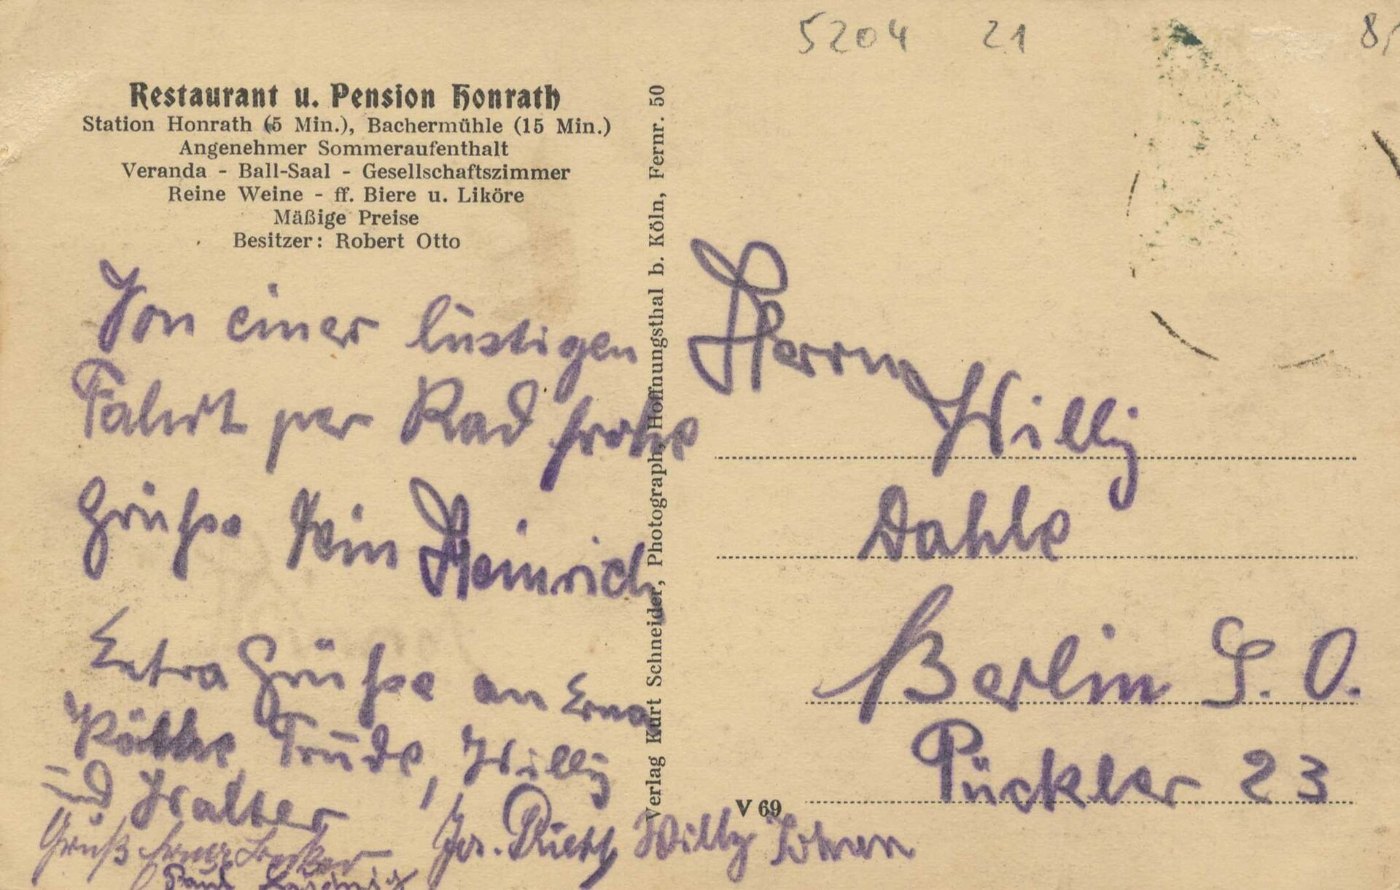 5204 21 8/
Restaurant u. Pension Honrath
Station Honrath (5 Min.), Bachermühle (15 Min.)
Angenehmer Sommeraufenthalt
Veranda - Ball-Saal - Gesellschaftszimmer
Reine Weine - ff. Biere u. Liköre
Mäßige Preise
Besitzer: Robert Otto
Von einer lustigen
Fahrt per Rad frohe
Grüße Dein Heinrich
Extra Grüße an Erna
Käthe Trude, Willy
und Walter
Gruß Becker Jos. Willy
Paul
Verlag Kurt Schneider, Photograph, Hoffnungsthal b. Köln, Fernr. 50
Herrn
Willy
Dahle
Berlin S. O.
Pückler 23
V 69